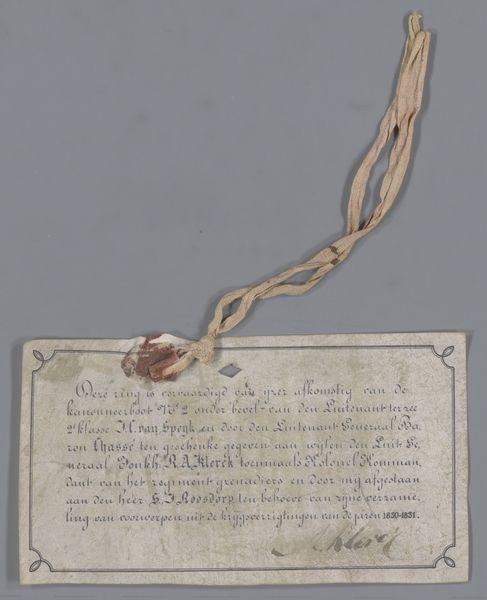 Deze ring is vervaardigd van ijzer afkomstig van de
kanonneerboot No 2 onder bevel van den Luitenant ter zee
2e klasse J.C. van Speyk en door den Luitenant Generaal Ba
ron Chassé ten geschenke gegeven aan wijlen den Luit Ge
neraal Jonkh. R.A. Klerck toenmaals Kolonel Komman,
dant van het regiment grenadiers en door mij afgestaan
aan den heer S.J. Roosdorp ten behoeve van zijne verzame,
ling van voorwerpen uit de krijgsverrigtingen van de jaren 1830-1831.
Klerck